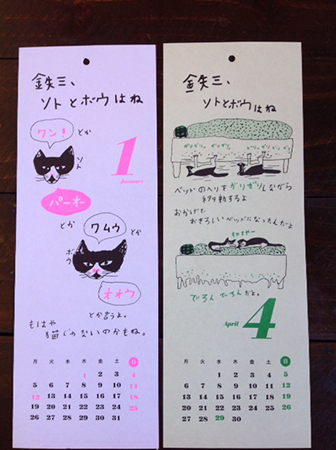 鉄三、
ソトとボウはね
ワン!
とか
ソト
1
January
パーオー
とか
ワムウ
とか
ボウ
オオウ
とか言うよ。
もはや
猫じゃないのかもね。
月 火 水 木 金 土 日
1 2 3 4
5 6 7 8 9 10 11
12 13 14 15 16 17 18
19 20 21 22 23 24 25
26 27 28 29 30 31
鉄三、
ソトとボウはね
ガリガリ
ベッドのヘリをガリガリしながら
移動するよ
おかげで
おそろしいベッドになったんだよ
でろんでろんだよ。
April
4
月 火 水 木 金 土 日
1 2 3 4 5
6 7 8 9 10 11 12
13 14 15 16 17 18 19
20 21 22 23 24 25 26
27 28 29 30